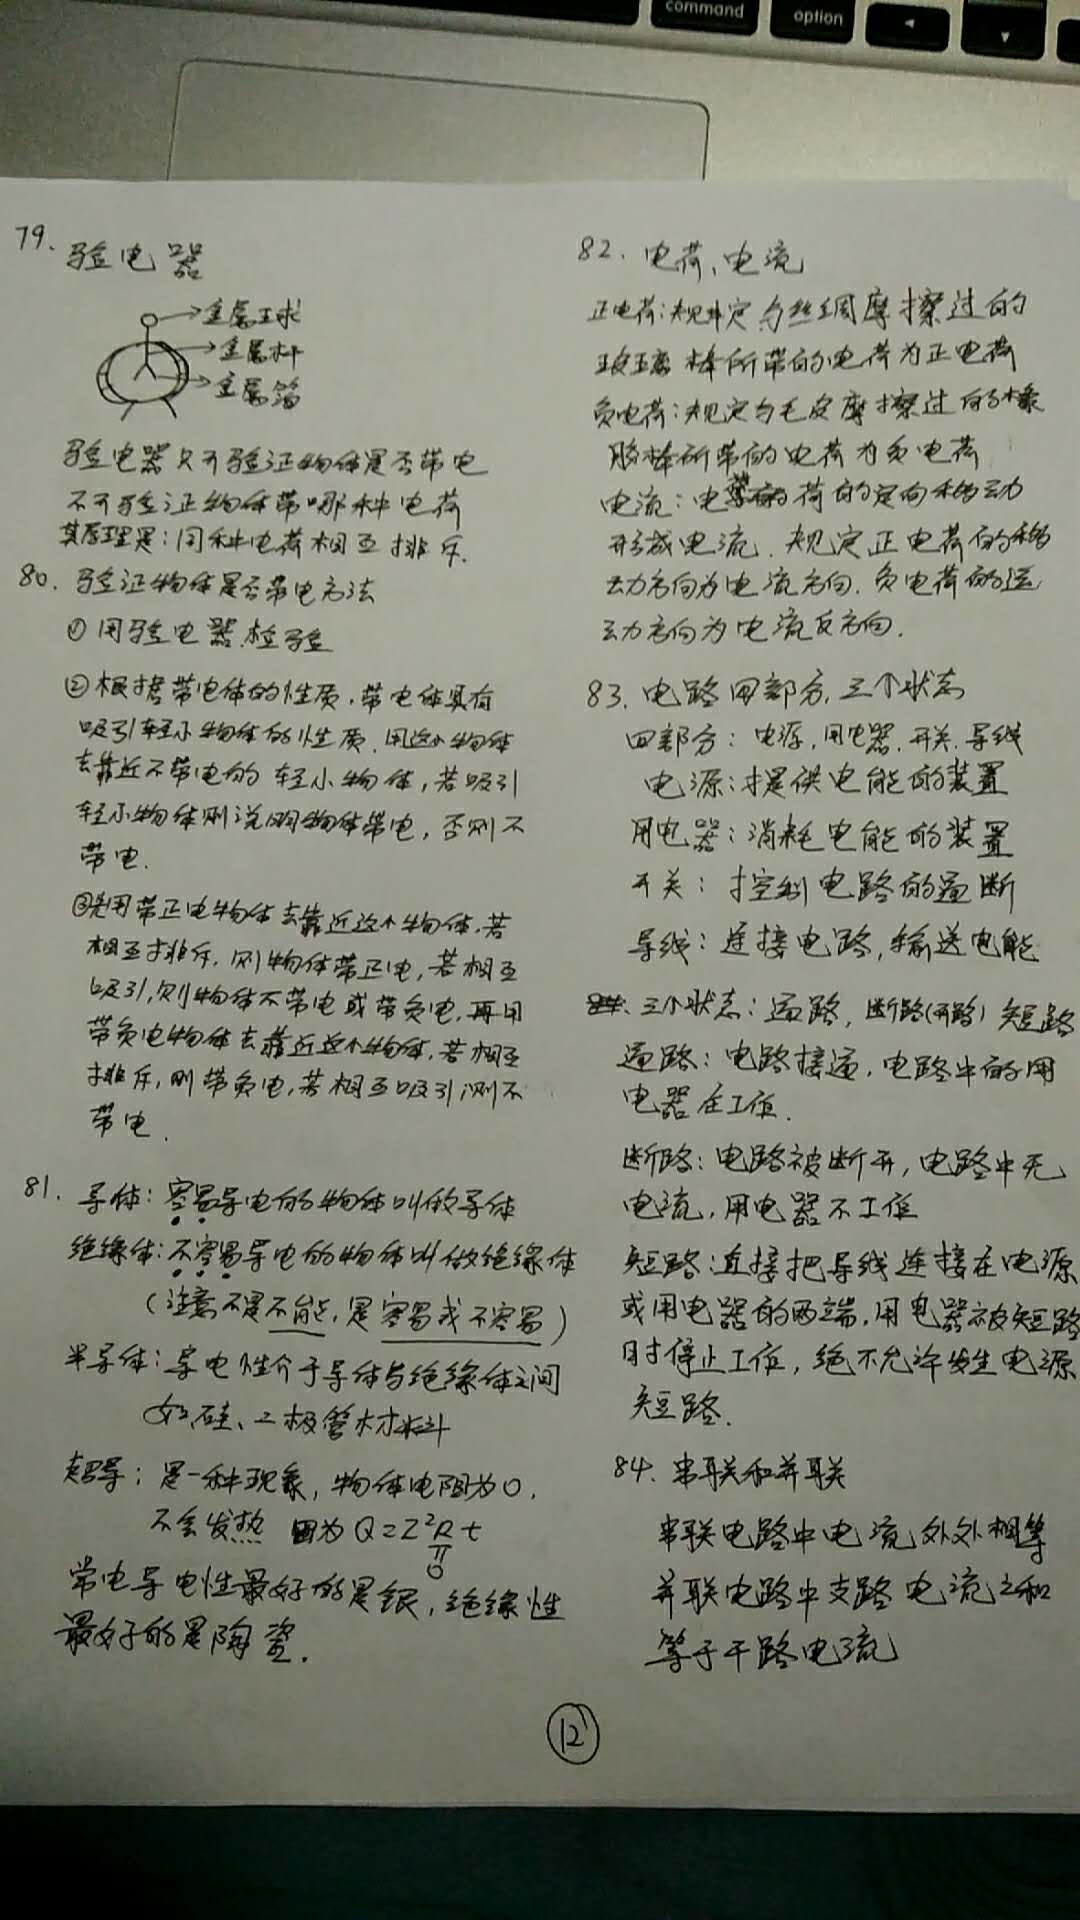 command
option
79. 验电器
金属球
金属杆
金属箔
验电器只可验证物体是否带电
不可验证物体带哪种电荷
其原理是:同种电荷相互排斥.
80. 验证物体是否带电方法
① 用验电器检验
②根据带电体的性质,带电体具有
吸引轻小物体的性质.用这个物体
去靠近不带电的轻小物体,若吸引
轻小物体则说明物体带电,否则不
带电.
③先用带正电物体去靠近这个物体,若
相互排斥,则物体带正电,若相互
吸引,则物体不带电或带负电,再用
带负电物体去靠近这个物体,若相互
排斥,则带负电,若相互吸引,则不
带电.
81. 导体:容易导电的物体叫做导体
绝缘体:不容易导电的物体叫做绝缘体
(注意不是不能,是容易或不容易)
半导体:导电性介于导体与绝缘体之间
如:硅、二极管材料
超导:是一种现象,物体电阻为0.
不会发热 因为Q=I²Rt
0
常电导电性最好的是银,绝缘性
最好的是陶瓷.
82. 电荷、电流
正电荷:规定与丝绸摩擦过的
玻璃棒所带的电荷为正电荷
负电荷:规定与毛皮摩擦过的橡
胶棒所带的电荷为负电荷
电流:电荷的定向移动
形成电流.规定正电荷的移
动方向为电流方向.负电荷的运
动方向为电流反方向.
83. 电路四部分,三个状态
四部分:电源,用电器.开关.导线
电源:提供电能的装置
用电器:消耗电能的装置
开关:控制电路的通断
导线:连接电路,输送电能
三个状态:通路,断路(开路)短路
通路:电路接通,电路中的用
电器在工作.
断路:电路被断开,电路中无
电流,用电器不工作
短路:直接把导线连接在电源
或用电器的两端,用电器被短路
时停止工作,绝不允许发生电源
短路.
84. 串联和并联
串联电路中电流处处相等
并联电路中支路电流之和
等于干路电流
12